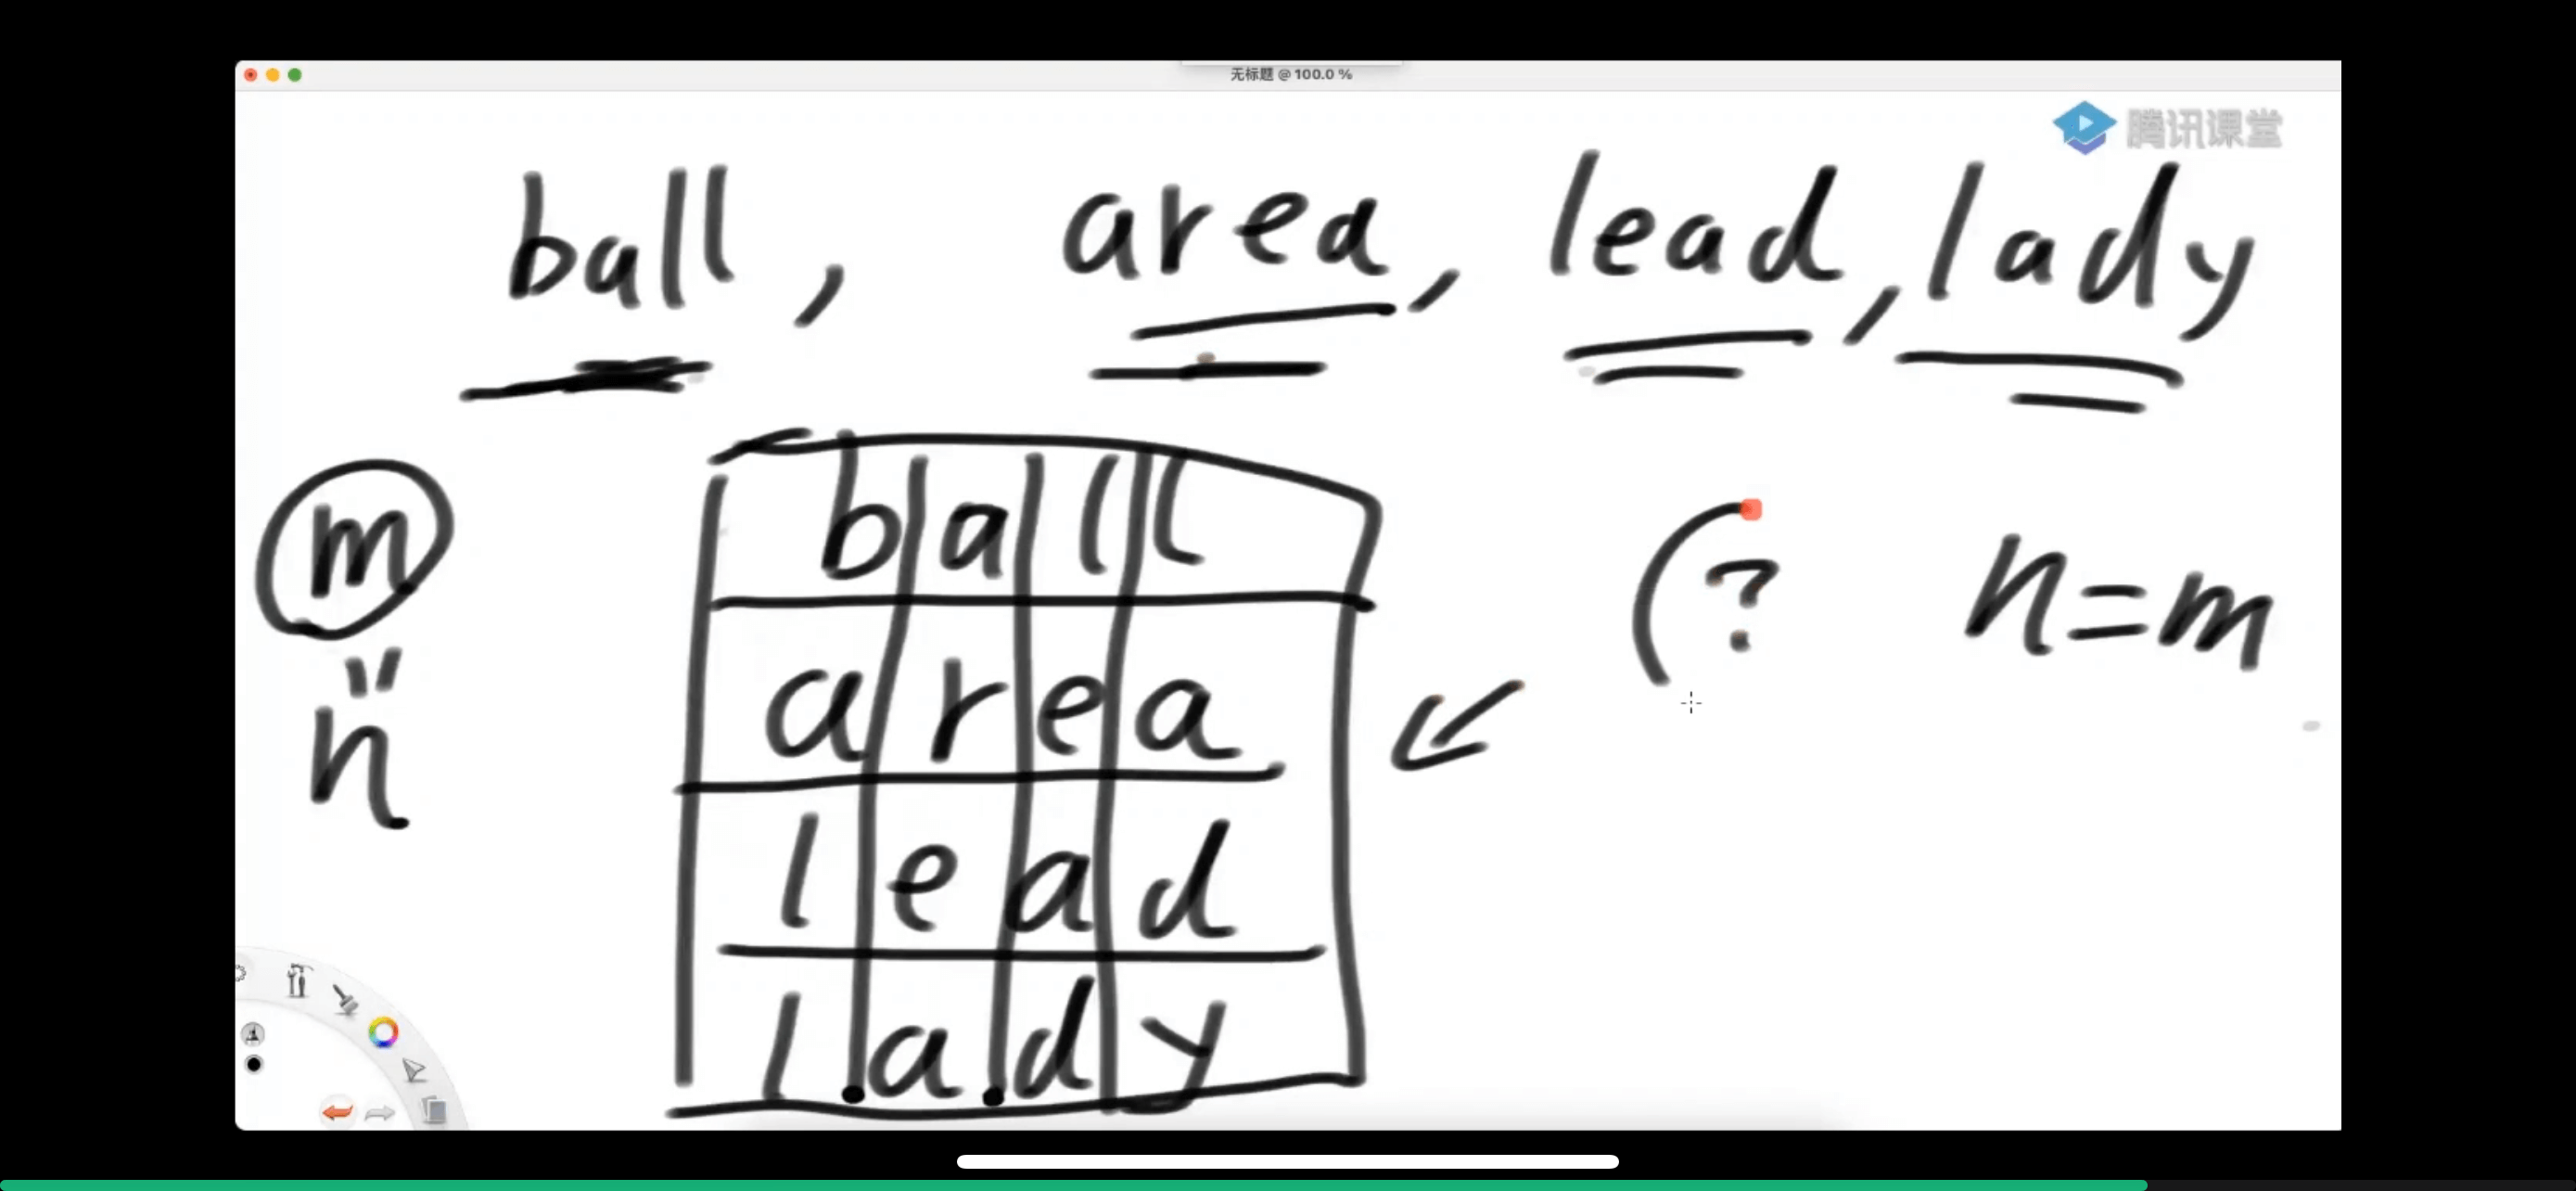 无标题 @ 100.0 %
腾讯课堂
ball, area, lead, lady
m
=
n
ball
area
lead
lady
(?
n=m